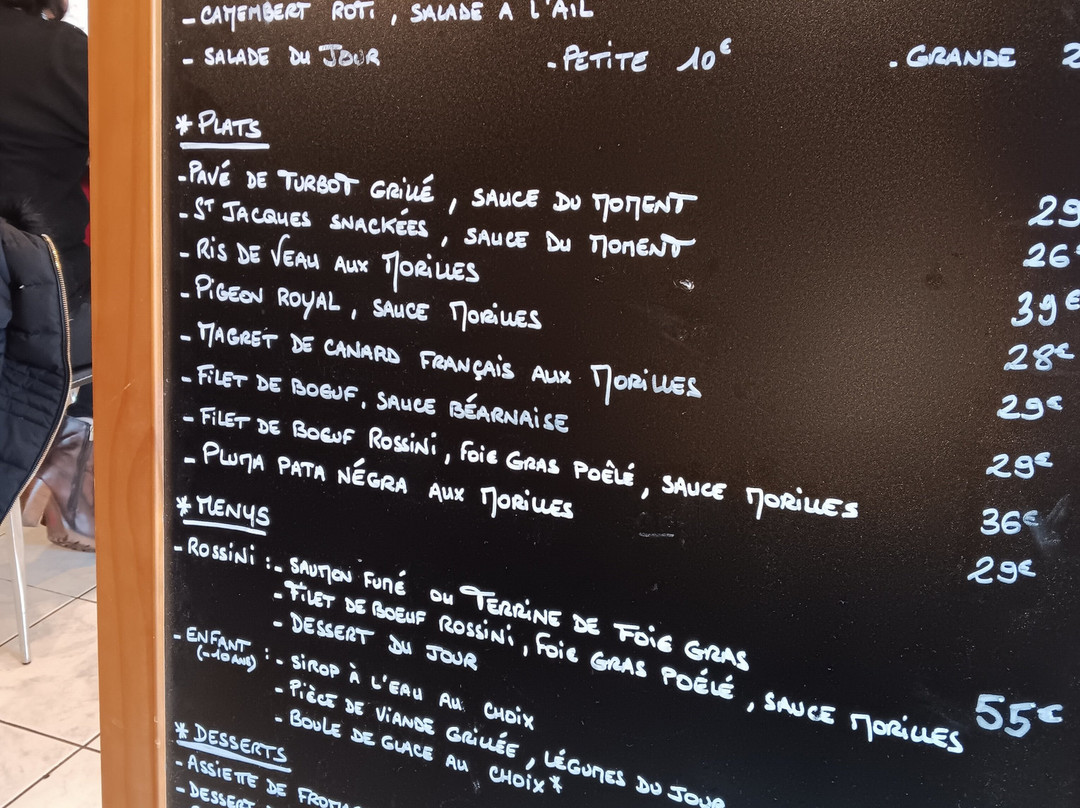 - CAMEMBERT RÔTI, SALADE A L'AIL
- SALADE DU JOUR - PETITE 10€ - GRANDE
* PLATS
- PAVÉ DE TURBOT GRILLÉ, SAUCE DU MOMENT 29
- ST JACQUES SNACKÉES, SAUCE DU MOMENT 26€
- RIS DE VEAU AUX MORILLES 39€
- PIGEON ROYAL, SAUCE MORILLES 28€
- MAGRET DE CANARD FRANÇAIS AUX MORILLES 29€
- FILET DE BOEUF, SAUCE BÉARNAISE 29€
- FILET DE BOEUF ROSSINI, FOIE GRAS POÊLÉ, SAUCE MORILLES 36€
- PLUMA PATA NÉGRA AUX MORILLES 29€
* MENUS
- ROSSINI : - SAUMON FUMÉ OU TERRINE DE FOIE GRAS
- FILET DE BOEUF ROSSINI, FOIE GRAS POÉLÉ, SAUCE MORILLES 55€
- DESSERT DU JOUR
- ENFANT (-10 ANS) : - SIROP À L'EAU AU CHOIX
- PIÈCE DE VIANDE GRILLÉE, LÉGUMES DU JOUR
- BOULE DE GLACE AU CHOIX*
* DESSERTS
- ASSIETTE DE FROMA
- DESSERT